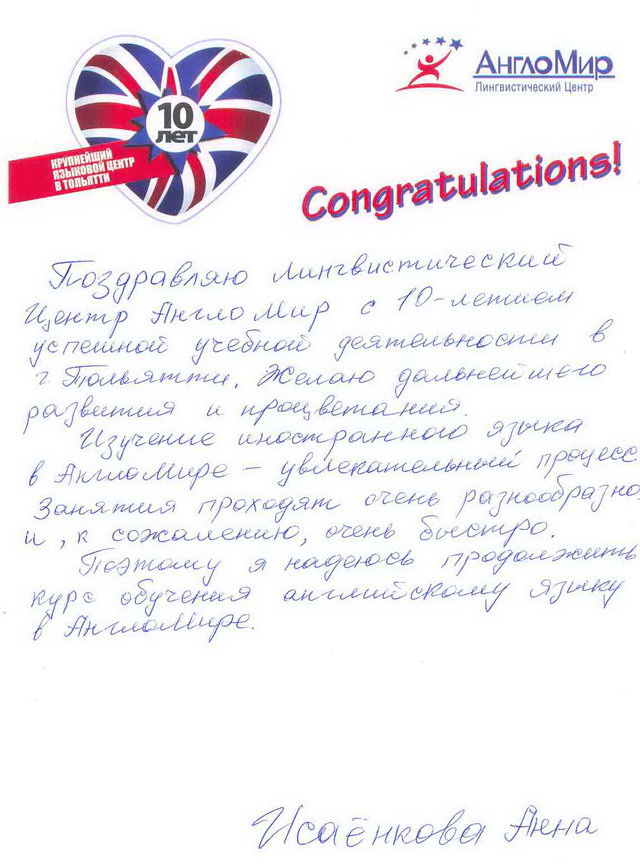 АнглоМир
Лингвистический Центр
10
лет
КРУПНЕЙШИЙ
ЯЗЫКОВОЙ ЦЕНТР
В ТОЛЬЯТТИ
Congratulations!
Поздравляю Лингвистический
Центр АнглоМир с 10-летием
успешной учебной деятельности в
г. Тольятти. Желаю дальнейшего
развития и процветания.
Изучение иностранного языка
в АнглоМире – увлекательный процесс.
Занятия проходят очень разнообразно
и, к сожалению, очень быстро.
Поэтому я надеюсь продолжить
курс обучения английскому языку
в АнглоМире.
Исаёнкова Анна